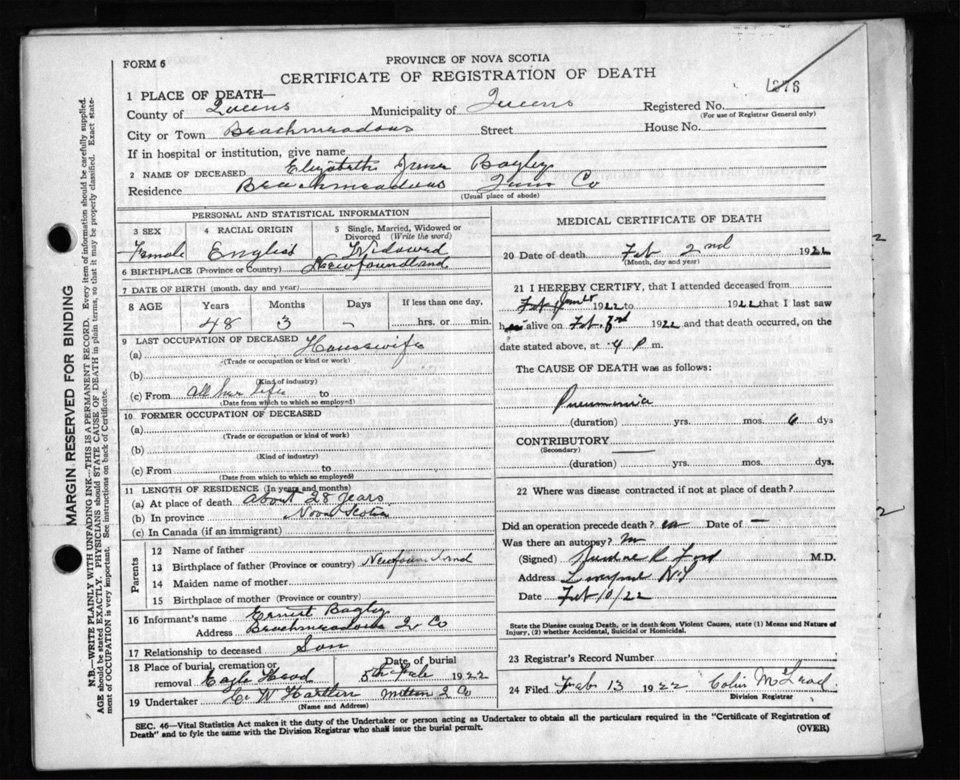 FORM 6
PROVINCE OF NOVA SCOTIA
CERTIFICATE OF REGISTRATION OF DEATH
1376
1 PLACE OF DEATH—
County of Queens Municipality of Queens Registered No.
(For use of Registrar General only)
City or Town Beachmeadows Street House No.
If in hospital or institution, give name
2 NAME OF DECEASED Elizabeth Bagley
Residence Beachmeadows Co
(Usual place of abode)
PERSONAL AND STATISTICAL INFORMATION
3 SEX 4 RACIAL ORIGIN 5 Single, Married, Widowed or Divorced (Write the word)
Female English Widowed
6 BIRTHPLACE (Province or Country) Newfoundland
7 DATE OF BIRTH (month, day and year)
8 AGE Years Months Days If less than one day,
48 3 – hrs. or min.
9 LAST OCCUPATION OF DECEASED
(a) Housewife
(Trade or occupation or kind or work)
(b)
(Kind of industry)
(c) From All her life to
(Date from which to which so employed)
10 FORMER OCCUPATION OF DECEASED
(a)
(Trade or occupation or kind of work)
(b)
(Kind of industry)
(c) From to
(Date from which to which so employed)
11 LENGTH OF RESIDENCE (In years and months)
(a) At place of death about 28 years
(b) In province Nova Scotia
(c) In Canada (if an immigrant)
Parents
12 Name of father
13 Birthplace of father (Province or country) Newfoundland
14 Maiden name of mother
15 Birthplace of mother (Province or country)
16 Informant's name Ernest Bagley
Address Beachmeadows Q Co
17 Relationship to deceased Son
18 Place of burial, cremation or removal Eagle Head
Date of burial 5th Feb 1922
19 Undertaker W Hartlen Milton Q Co
(Name and Address)
MEDICAL CERTIFICATE OF DEATH
20 Date of death Feb 2nd 1922
(Month, day and year)
21 I HEREBY CERTIFY, that I attended deceased from
1922 to 1922 that I last saw
h alive on Feb. 1922 and that death occurred, on the
date stated above, at 4 P m.
The CAUSE OF DEATH was as follows:
Pneumonia
(duration) yrs. mos. 6 dys
CONTRIBUTORY
(Secondary)
(duration) yrs. mos. dys.
22 Where was disease contracted if not at place of death?
Did an operation precede death? no Date of –
Was there an autopsy? no
(Signed) R Ford M.D.
Address Liverpool NS
Date Feb 10/22
State the Disease causing Death, or in death from Violent Causes, state (1) Means and Nature of
Injury, (2) whether Accidental, Suicidal or Homicidal.
23 Registrar's Record Number
24 Filed Feb 13 1922 Colin McLeod
Division Registrar
SEC. 46—Vital Statistics Act makes it the duty of the Undertaker or person acting as Undertaker to obtain all the particulars required in the "Certificate of Registration of
Death" and to fyle the same with the Division Registrar who shall issue the burial permit.
(OVER)
MARGIN RESERVED FOR BINDING
N.B.—WRITE PLAINLY WITH UNFADING INK—THIS IS A PERMANENT RECORD. Every item of information should be carefully supplied.
AGE should be stated EXACTLY. PHYSICIANS should STATE CAUSE OF DEATH in plain terms, so that it may be properly classified. Exact state-
ment of OCCUPATION is very important. See instructions on back of Certificate.